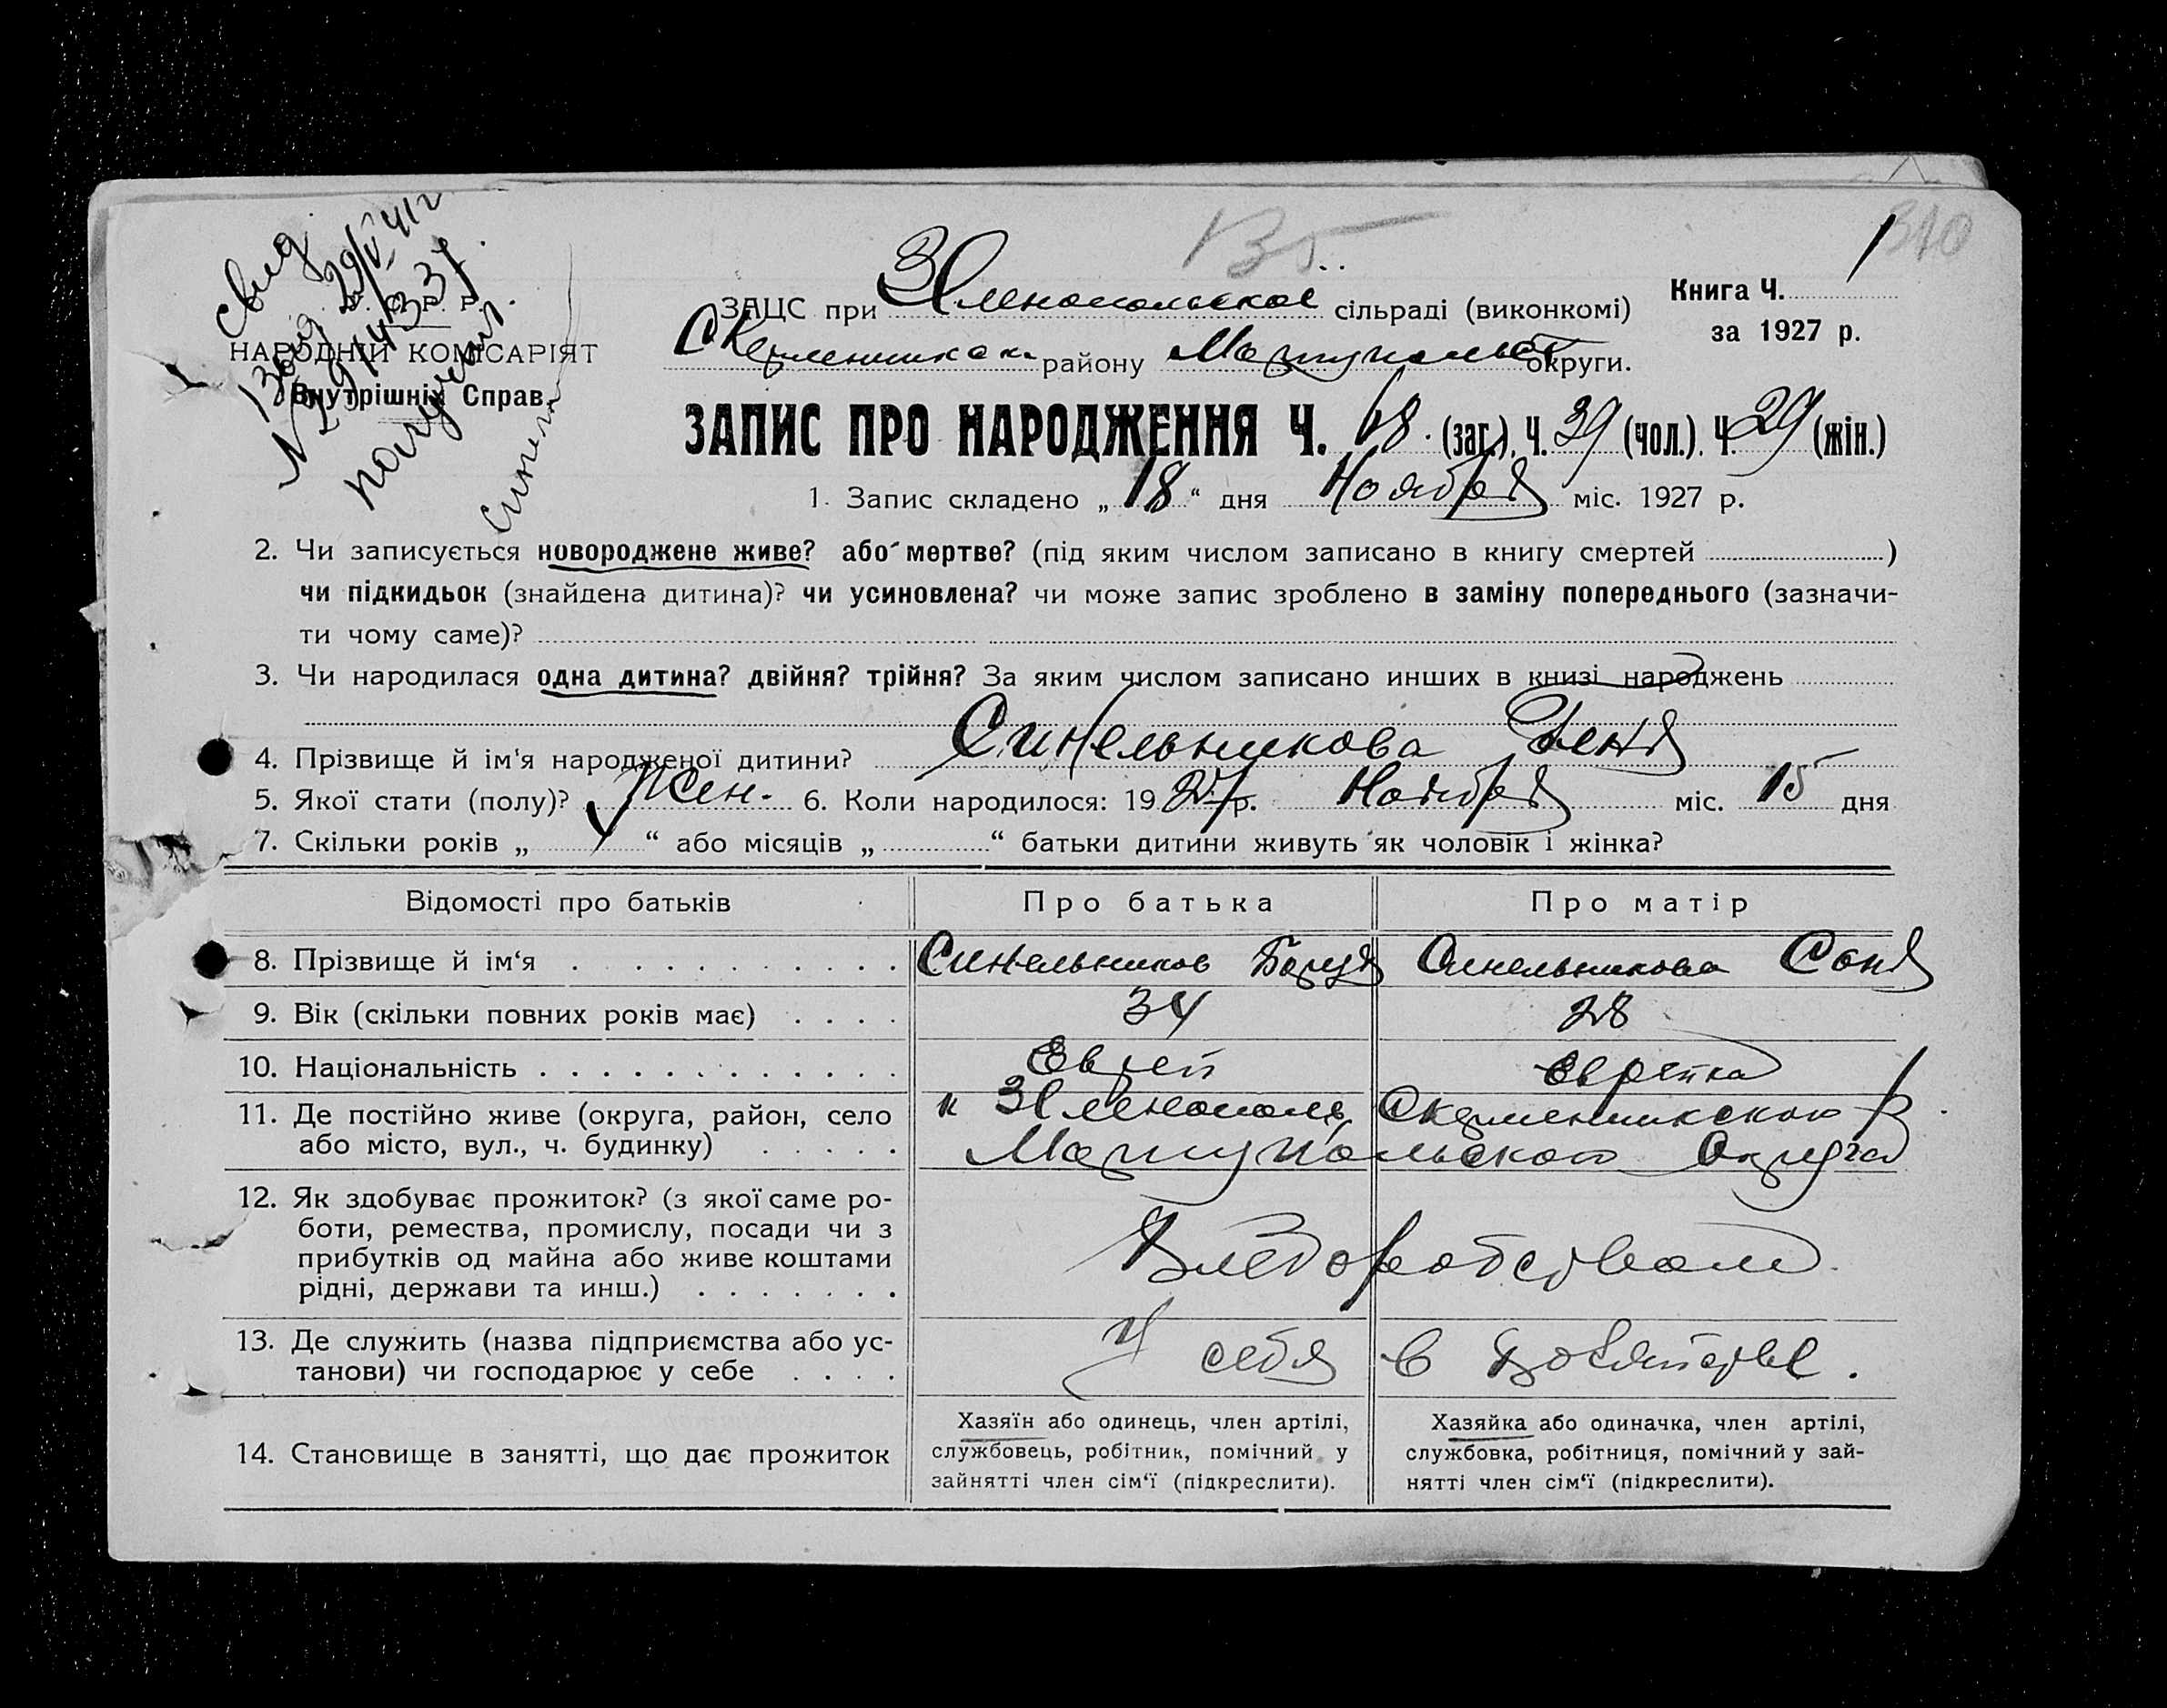 135
310
Свид.
29/V 41 г
НАРОДНІЙ КОМІСАРІЯТ
Внутрішніх Справ.
получил.
ЗАЦС при Зеленопольское сільраді (виконкомі)
району округи.
Книга Ч. 1
за 1927 р.
ЗАПИС ПРО НАРОДЖЕННЯ Ч. 68 (заг.), Ч. 39 (чол.). Ч. 29 (жін.)
1. Запис складено „ 18 “ дня Ноября міс. 1927 р.
2. Чи записується новороджене живе? або мертве? (під яким числом записано в книгу смертей )
чи підкидьок (знайдена дитина)? чи усиновлена? чи може запис зроблено в заміну попереднього (зазначи-
ти чому саме)?
3. Чи народилася одна дитина? двійня? трійня? За яким числом записано инших в книзі народжень
4. Прізвище й ім‘я народженої дитини? Синельникова Геня
5. Якої стати (полу)? Жен. 6. Коли народилося: 1927 р. Ноября міс. 15 дня
7. Скільки років „ “ або місяців „ “ батьки дитини живуть як чоловік і жінка?
Відомості про батьків Про батька Про матір
8. Прізвище й ім‘я Синельников Синельникова Соня
9. Вік (скільки повних років має) 34 28
10. Національність Еврей Еврейка
11. Де постійно живе (округа, район, село к Зеленополь р.
або місто, вул., ч. будинку) Мариупольского Округа
12. Як здобуває прожиток? (з якої саме ро-
боти, ремества, промислу, посади чи з
прибутків од майна або живе коштами
рідні, держави та инш.) Хлеборобством
13. Де служить (назва підприємства або ус-
танови) чи господарює у себе у себя в хозяйстве.
14. Становище в занятті, що дає прожиток
Хазяїн або одинець, член артілі,
службовець, робітник, помічний у
зайнятті член сім‘ї (підкреслити).
Хазяйка або одиначка, член артілі,
службовка, робітниця, помічний у зай-
нятті член сім‘ї (підкреслити).